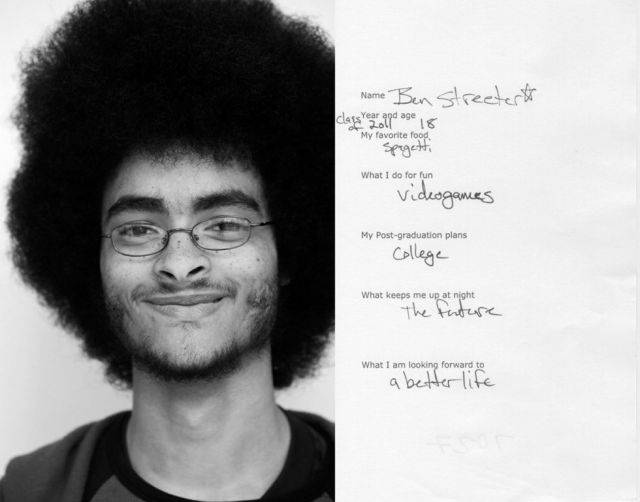 Name Ben Streeter☆
Year and age
class of 2011 18
My favorite food
Spegetti
What I do for fun
videogames
My Post-graduation plans
College
What keeps me up at night
The future
What I am looking forward to
a better life